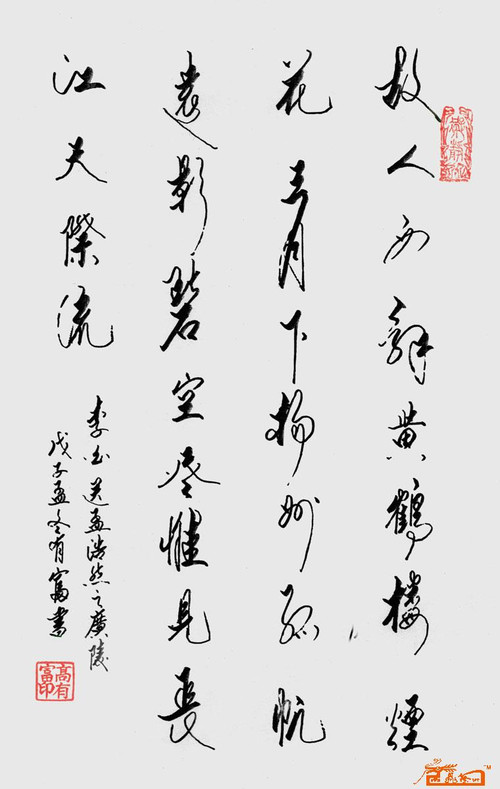 故人西辞黄鶴樓煙
花三月下揚州孤帆
遠影碧空尽惟見長
江天際流
李白送孟浩然之廣陵
戊子孟冬有富書
高有富印